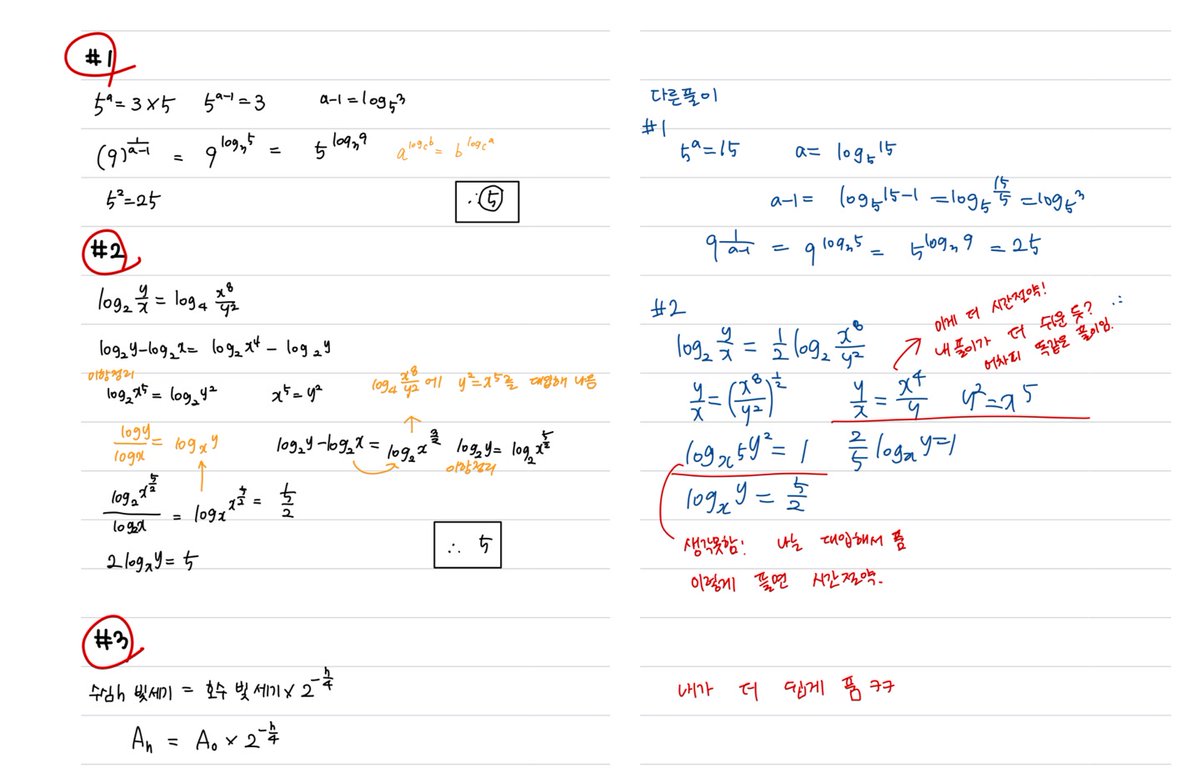 #1
5^a = 3 × 5   5^{a-1} = 3   a-1 = log₅3
(9)^{1/(a-1)} = 9^{log₃5} = 5^{log₃9}   a^{log_c b} = b^{log_c a}
5² = 25   ∴ ⑤
#2
log₂ y/x = log₄ x⁸/y²
log₂y - log₂x = log₂x⁴ - log₂y
이항정리
log₂x⁵ = log₂y²   x⁵ = y²
log₄ x⁸/y² 에 y² = x⁵를 대입해 나옴
logy/logx = log_x y   log₂y - log₂x = log₂x^{3/2}   log₂y = log₂x^{5/2}
이항정리
log₂x^{5/2}/log₂x = log_x x^{5/2} = 5/2
2log_x y = 5   ∴ 5
#3
수심h 빛세기 = 호수 빛세기 × 2^{-h/4}
A_h = A₀ × 2^{-h/4}
다른풀이
#1
5^a = 15   a = log₅15
a-1 = log₅15-1 = log₅ 15/5 = log₅3
9^{1/(a-1)} = 9^{log₃5} = 5^{log₃9} = 25
#2
이게 더 시간절약!
내 풀이가 더 쉬운 듯? ∵
어차피 똑같은 풀이임.
log₂ y/x = 1/2 log₂ x⁸/y²
y/x = (x⁸/y²)^{1/2}   y/x = x⁴/y   y² = x⁵
log_{x⁵} y² = 1   2/5 log_x y = 1
log_x y = 5/2
생각못함! 나는 대입해서 품
이렇게 풀면 시간절약.
내가 더 쉽게 품 ㅋㅋ